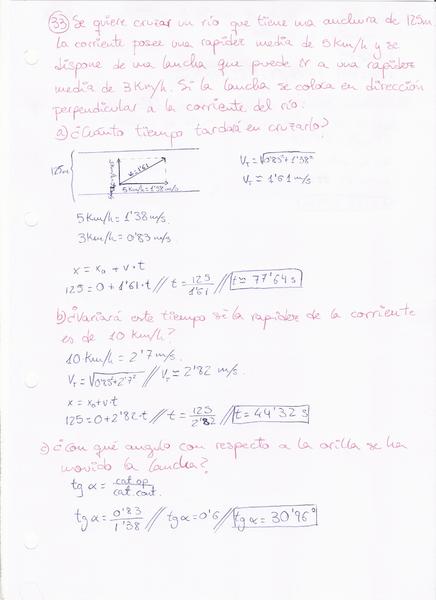 33) Se quiere cruzar un río que tiene una anchura de 125m
La corriente posee una rapidez media de 5Km/h y se
dispone de una lancha que puede ir a una rapidez
media de 3Km/h. Si la lancha se coloca en dirección
perpendicular a la corriente del río:
a) ¿Cuánto tiempo tardará en cruzarlo?
125m
V=1'61
5Km/h=1'38m/s
V_T=√0'83²+1'38²
V_T≈1'61m/s
5Km/h=1'38m/s.
3Km/h=0'83m/s.
x = x₀ + v·t
125=0+1'61·t // t=125/1'61 // t≈77'64s
b) ¿Variará este tiempo si la rapidez de la corriente
es de 10Km/h?
10Km/h=2'7m/s.
V_T=√0'83²+2'7² // V_T≈2'82 m/s.
x=x₀+v·t
125=0+2'82·t // t=125/2'82 // t=44'32s
c) ¿Con qué angulo con respecto a la orilla se ha
movido la lancha?
tg α = cat.op/cat.cont.
tg α=0'83/1'38 // tg α=0'6 // tg α=30'96°